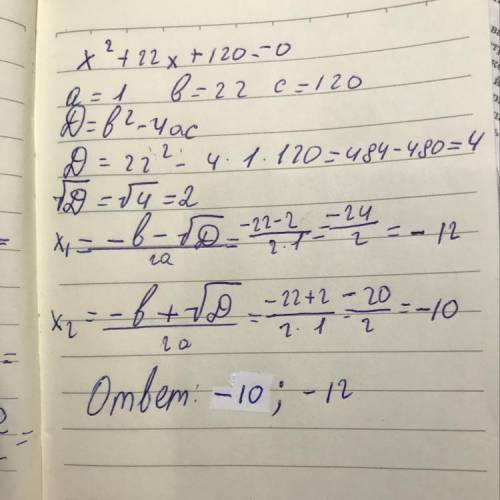 x² + 22x + 120 = 0
a = 1 в = 22 c = 120
D = в² - 4ac
D = 22² - 4 · 1 · 120 = 484 - 480 = 4
√D = √4 = 2
x₁ = (-в - √D)/2a = (-22-2)/(2·1) = -24/2 = -12
x₂ = (-в + √D)/2a = (-22+2)/(2·1) = -20/2 = -10
Ответ: -10; -12